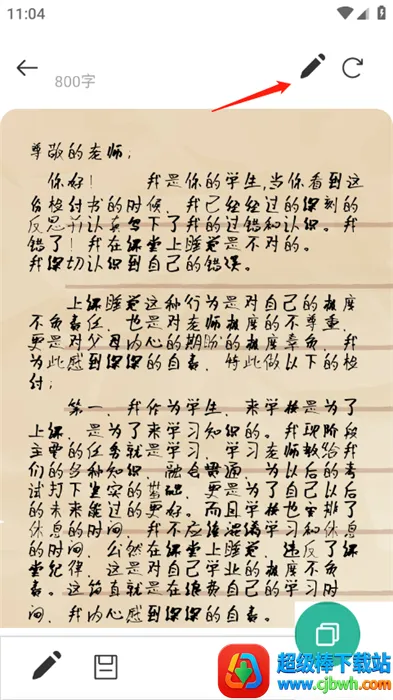 11:04
800字
尊敬的老师：
你好！ 我是你的学生,当你看到这
份检讨书的时候，我已经经过的深刻的
反思并认真写下了我的过错和认识。我
错了！我在课堂上睡觉是不对的。
我深切认识到自己的错误。
上课睡觉这种行为是对自己的极度
不负责任，也是对老师极度的不尊重，
更是对父母内心的期盼的极度辜负，我
为此感到深深的自责，特此做以下的检
讨：
第一，我作为学生，来学校是为了
上课，是为了来学习知识的。我现阶段
主要的任务就是学习，学习老师教给我
们的各种知识，融会贯通，为以后的考
试打下坚实的基础，更是为了自己以后
的未来能过的更好。而且学校也安排了
休息的时间，我不应该混淆学习和休息
的时间，公然在课堂上睡觉，违反了课
堂纪律，这是对自己学业的极度不负
责。这简直就是在浪费自己的学习时
间，我内心感到深深的自责。
超级棒下载站
www.cjbwh.com